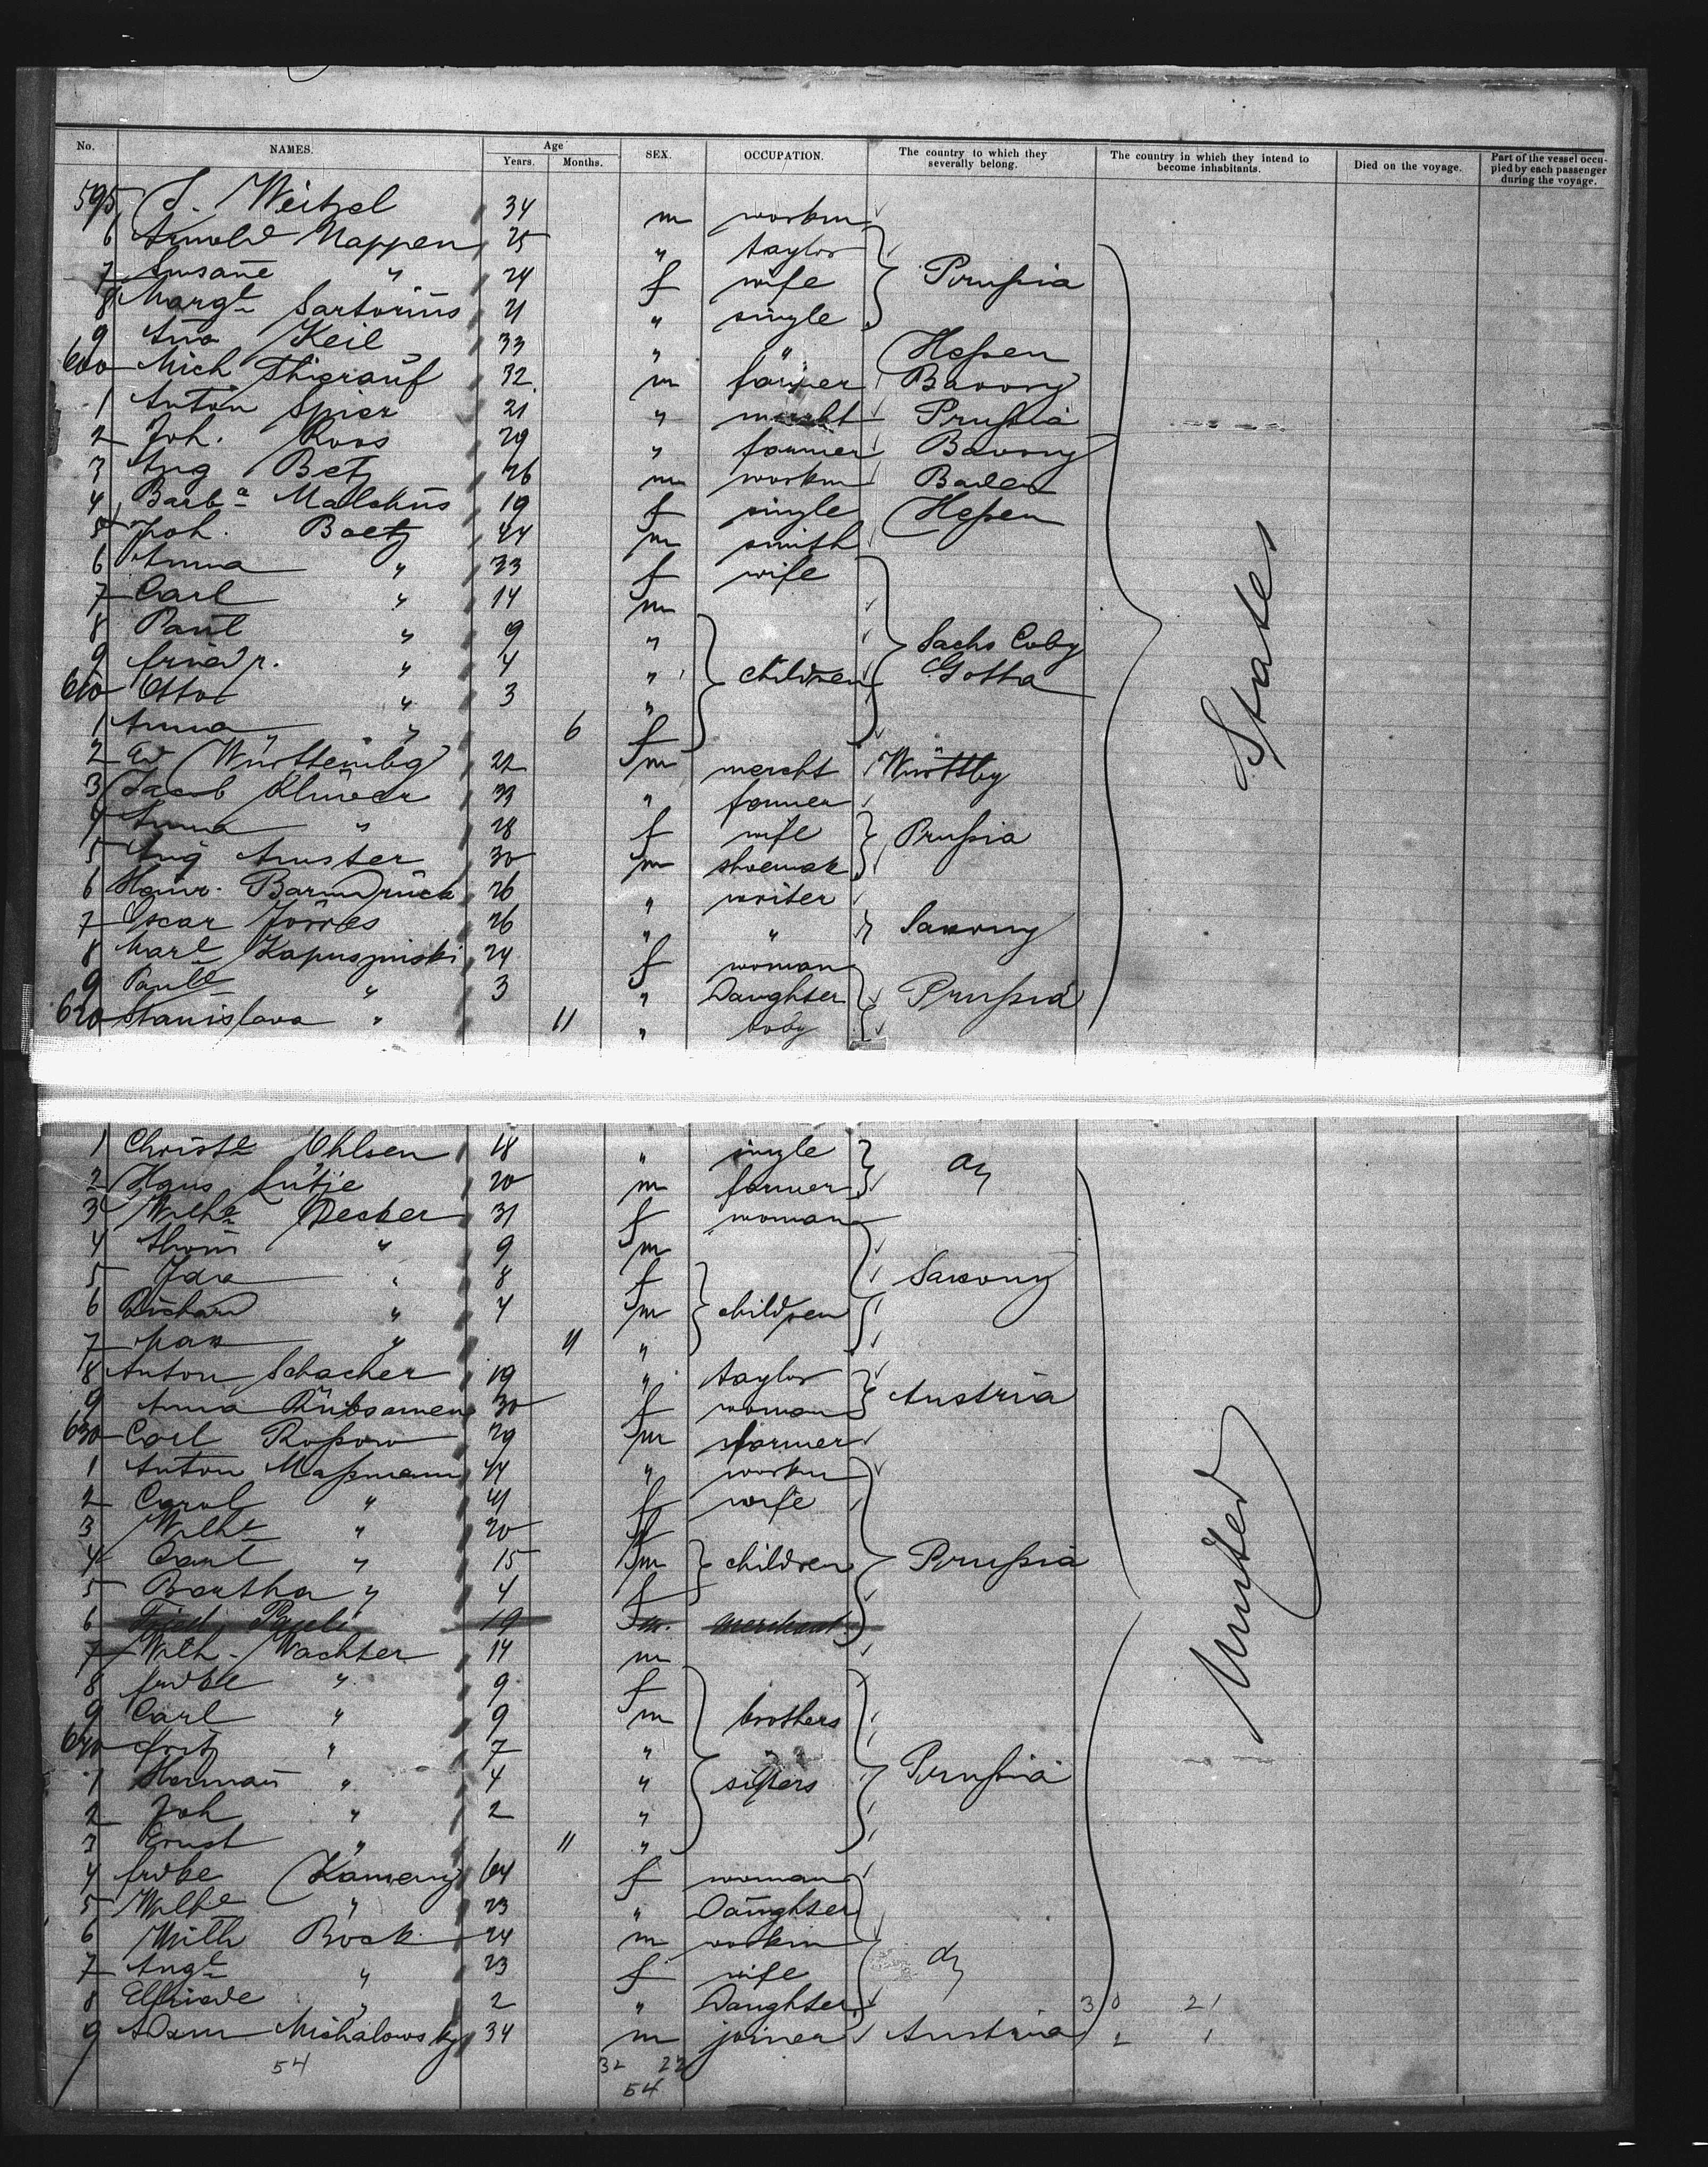 No. NAMES. Age Years. Months. SEX. OCCUPATION. The country to which they severally belong. The country in which they intend to become inhabitants. Died on the voyage. Part of the vessel occupied by each passenger during the voyage.
595 J. Weitzel 34 m workm
6 Arnold Nappen 25 " taylor
7 Susane " 24 f wife Prußia
8 Margt Sartorius 21 " single
9 Ana Keil 33 " " Heßen
600 Mich Thierauf 32 m farmer Bavory
1 Anton Spier 21 " mercht Prußia
2 Joh. Roos 29 " farmer Bavory
3 Aug Betz 26 m workm Baden
4 Barba Malchus 19 f single Heßen
5 Joh. Baetz 44 m smith
6 Anna " 33 f wife
7 Carl " 14 m
8 Paul " 9 " Sachs Cobg
9 friedr. " 4 " children Gotha
610 Otto " 3 "
1 Anna " 6 f
2 Ed Württembg 22 m mercht Württbg
3 Jacob 33 " farmer
4 Anna " 28 f wife Prußia
5 Aug Anster 30 m shoemak
6 Heinr. 26 " writer
7 Oscar Jörres 26 " " Saxony
8 Marl Kapuszinski 24 f woman
9 Paulle " 3 " Daughter Prußia
620 Stanislava " 11 " baby
States
1 Christe Ohlsen 18 " single do
2 Hans Lütje 20 m farmer
3 Wilhe Decker 31 f woman
4 " 9 m
5 Ida " 8 f Saxony
6 Richard " 4 m children
7 Max " 11 "
8 Anton Schacher 19 " taylor
9 Anna Rübsamen 30 f woman Austria
630 Carl Roßow 29 m farmer
1 Anton Maßmann 44 " workm
2 Carol " 41 f wife
3 Wilhe " 20 f
4 Paul " 15 m children Prußia
5 Bertha " 4 f
6 Fried. Pauli 19 m. merchant
7 Wilh. Wachter 14 m
8 fridke " 9 f
9 Carl " 9 m brothers
640 fritz " 7 "
1 Herman " 4 " sisters Prußia
2 Joh " 2 "
3 Ernst " 11 "
4 fridke Kameny 64 f woman
5 Wilhe " 23 " Daughter
6 Wilh Bock 24 m workm
7 Augte " 23 f wife do
8 Elfriede " 2 " Daughter 30 21
9 Adam Michalowsky 34 m joiner Austria 2 1
United
54 32 22
54